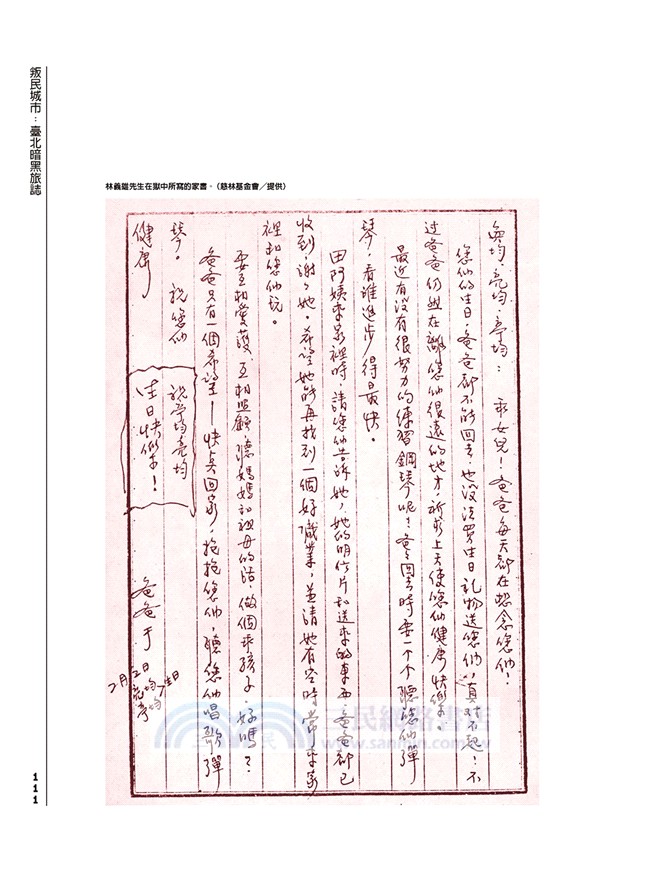 叛民城市：臺北暗黑旅誌
林義雄先生在獄中所寫的家書。（慈林基金會／提供）
奐均、亮均、亭均： 乖女兒！爸爸每天都在想念您们！
您们的生日，爸爸都不能回去，也没法買生日礼物送您们，真对不起！不
过爸爸仍然在離您们很遠的地方，祈求上天使您们健康快樂。
最近有没有很努力的練習鋼琴呢？爸回去時要一个个聽您们彈
琴，看誰進步得最快。
田阿姨來家裡時，請您们告訴她，她的明信片和送來的東西，爸爸都已
收到，謝謝她。希望她能再找到一個好職業，並請她有空時常來家
裡和您们玩。
要互相愛護，互相照顧，聽媽媽和祖母的話，做個乖孩子，好嗎？
爸爸只有一個希望——快点回家，抱抱您们，聽您们唱歌彈
琴。 祝您们
健康
祝亭均亮均
生日快樂！
爸爸于
二月五日
亮均
亭均
生日
三民網路書店
www.sanmin.com.tw
111